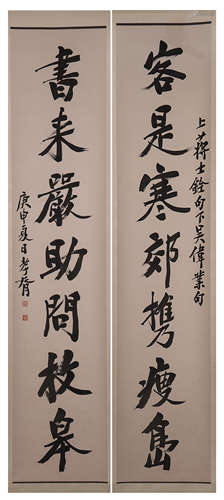 客是寒郊携瘦島
上蔣士銓句下吳偉業句
書来嚴助問枚皋
庚申夏日孝胥